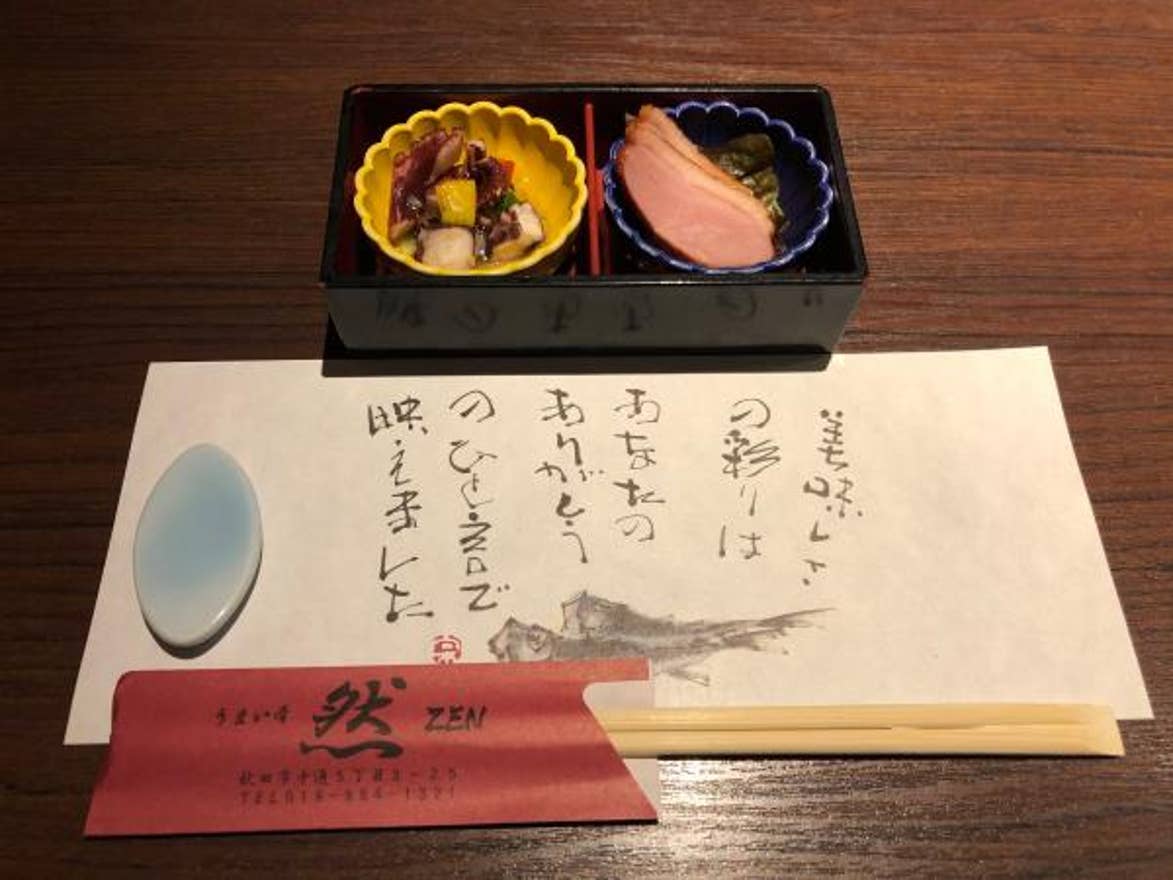 美味しさ
の彩りは
あなたの
ありがとう
のひと言で
映えました
うまい亭
然
ZEN
秋田市中通5丁目3-25